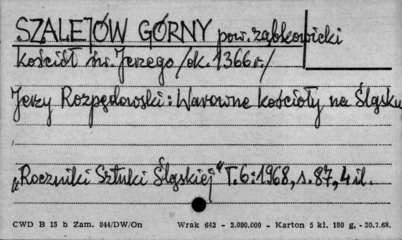 SZALEJÓW GÓRNY pow. ząbkowicki
kościół św. Jerzego /ok. 1366 r./
Jerzy Rozpędowski: Warowne kościoły na Śląsku
„Roczniki Sztuki Śląskiej" T.6:1968, s.87, 4 il.
CWD B 15 b Zam. 844/DW/On Wrak 643 - 2.090.000 - Karton 5 kl. 180 g, - 30.7.68.